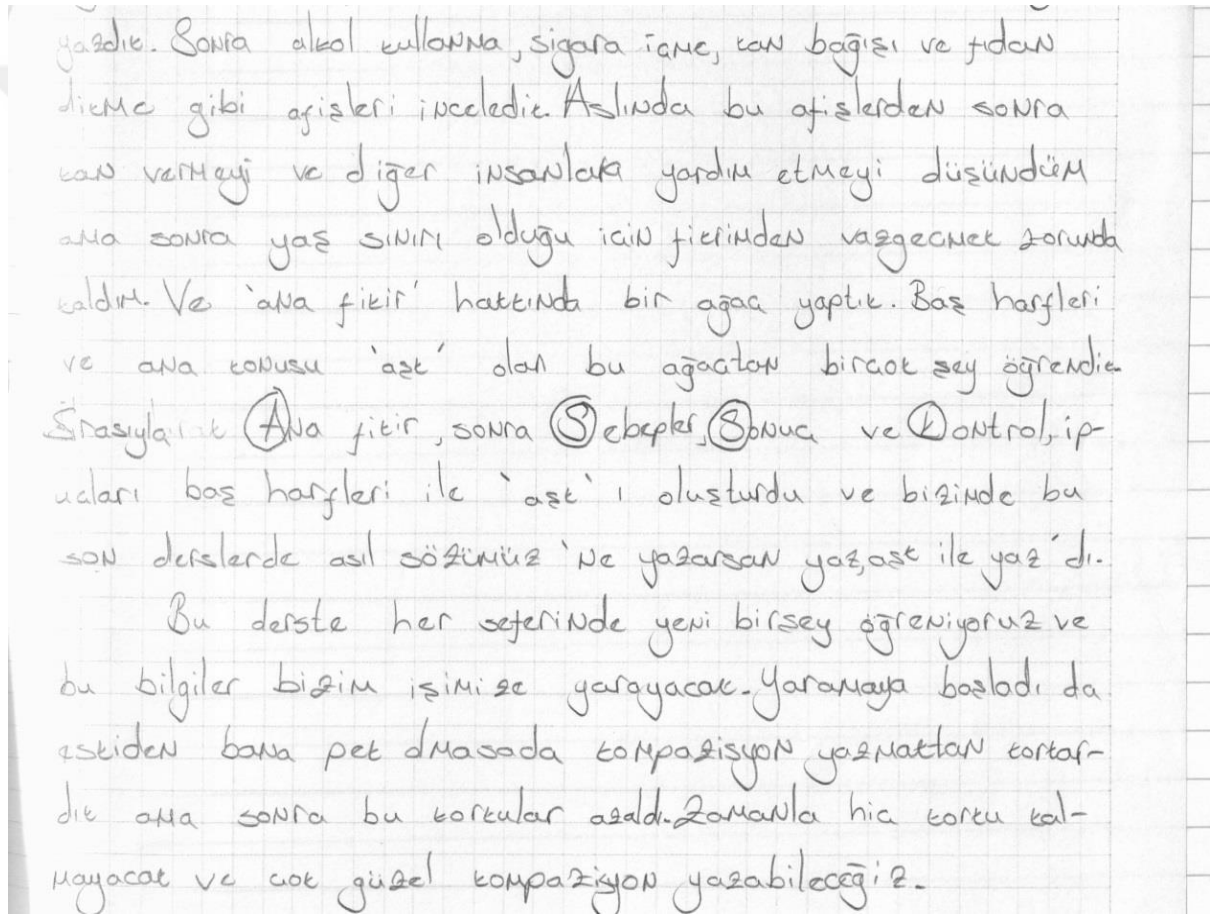 yazdık. Sonra alkol kullanma, sigara içme, kan bağışı ve fidan
dikme gibi afişleri inceledik. Aslında bu afişlerden sonra
kan vermeyi ve diğer insanlara yardım etmeyi düşündüm
ama sonra yaş sınırı olduğu için fikrimden vazgeçmek zorunda
kaldım. Ve 'ana fikir' hakkında bir ağaç yaptık. Baş harfleri
ve ana konusu 'aşk' olan bu ağaçtan birçok şey öğrendik.
Sırasıyla Ana fikir, sonra Sebepler, Sonuç ve Kontrol, ip-
uçları baş harfleri ile 'aşk' ı oluşturdu ve bizimde bu
son derslerde asıl sözümüz 'Ne yazarsan yaz, aşk ile yaz'dı.
Bu derste her seferinde yeni birşey öğreniyoruz ve
bu bilgiler bizim işimize yarayacak. Yaramaya başladı da
eskiden bana pek olmasada kompozisyon yazmaktan korkar-
dık ama sonra bu korkular azaldı. Zamanla hiç korku kal-
mayacak ve çok güzel kompozisyon yazabileceğiz.